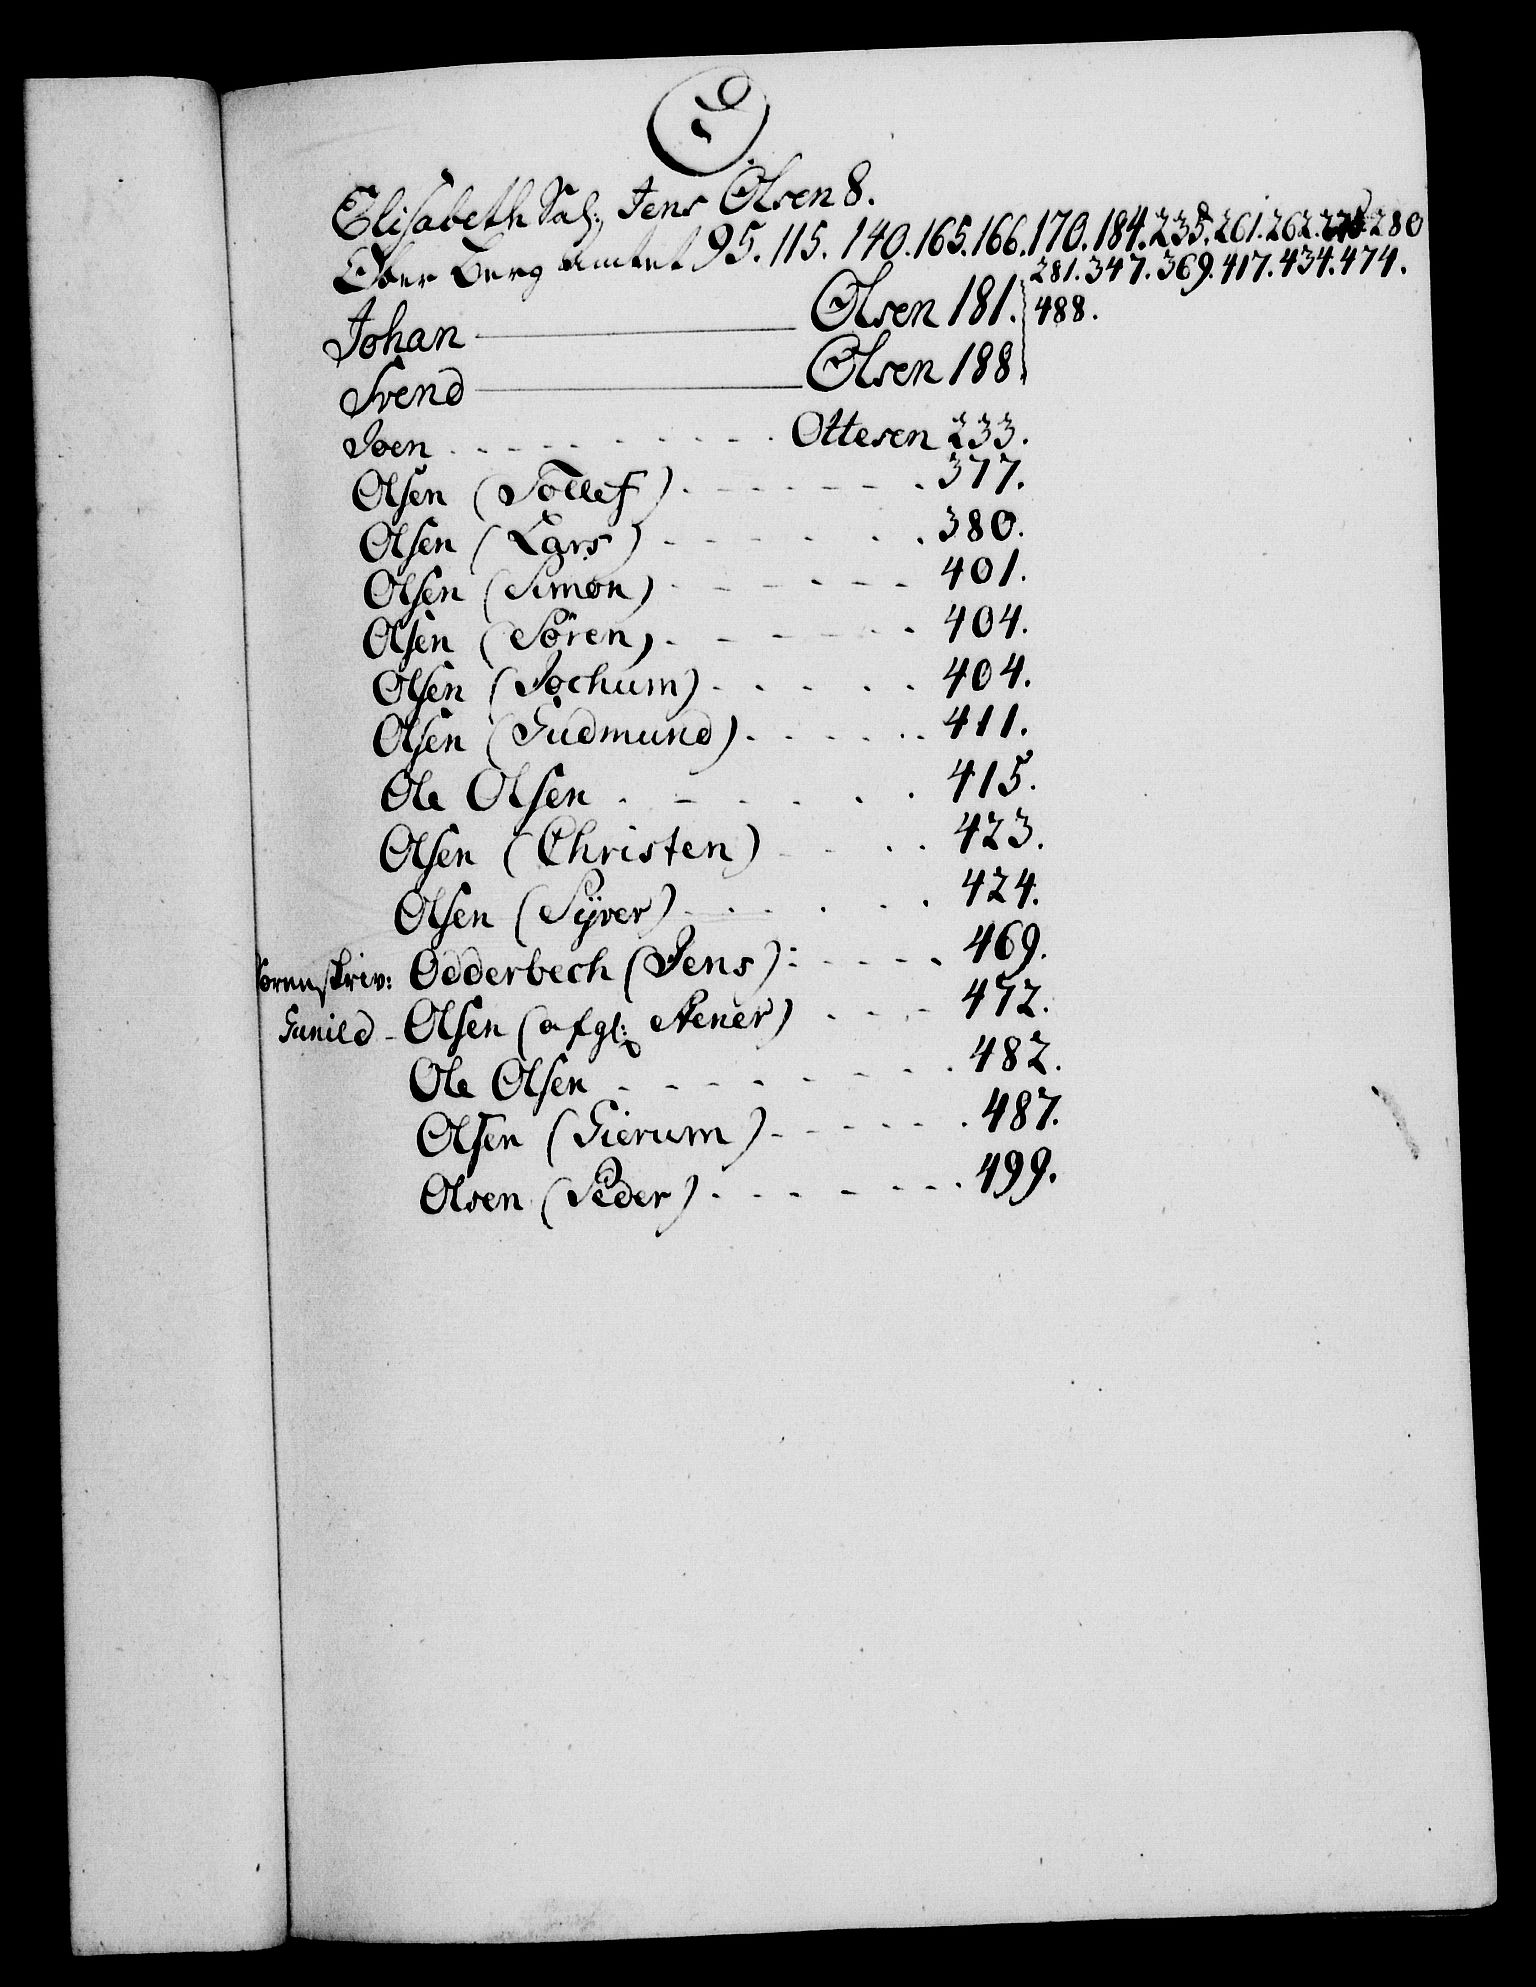 O
Elisabeth Sal: Jens Olsen 8.
Ober Berg Amtet 95. 115. 140. 165. 166. 170. 184. 235. 261. 262. 280
281. 347. 369. 417. 434. 474.
Johan Olsen 181. 488.
Svend Olsen 188
Joen - - - - - - - - Ottesen 233.
Olsen (Tollef) . - - - - - . 377.
Olsen (Lars) - - - - - . . 380.
Olsen (Simon) - - - - - - 401.
Olsen (Sören) . - - - - . 404.
Olsen (Jochum) . . . . . 404.
Olsen (Gudmund) . . . . . . 411.
Ole Olsen . - . . . . 415.
Olsen (Christen) - - . . 423.
Olsen (Syver) - . . . . . 424.
Sorenskriv: Odderbech (Jens): - - - - . 469.
Gunild - Olsen (afgl: Stener) . . . - 472.
Ole Olsen - - - - - - - - . 482.
Olsen (Gierum) - - - - - . 487.
Olsen (Peder) . - - - - - . 499.